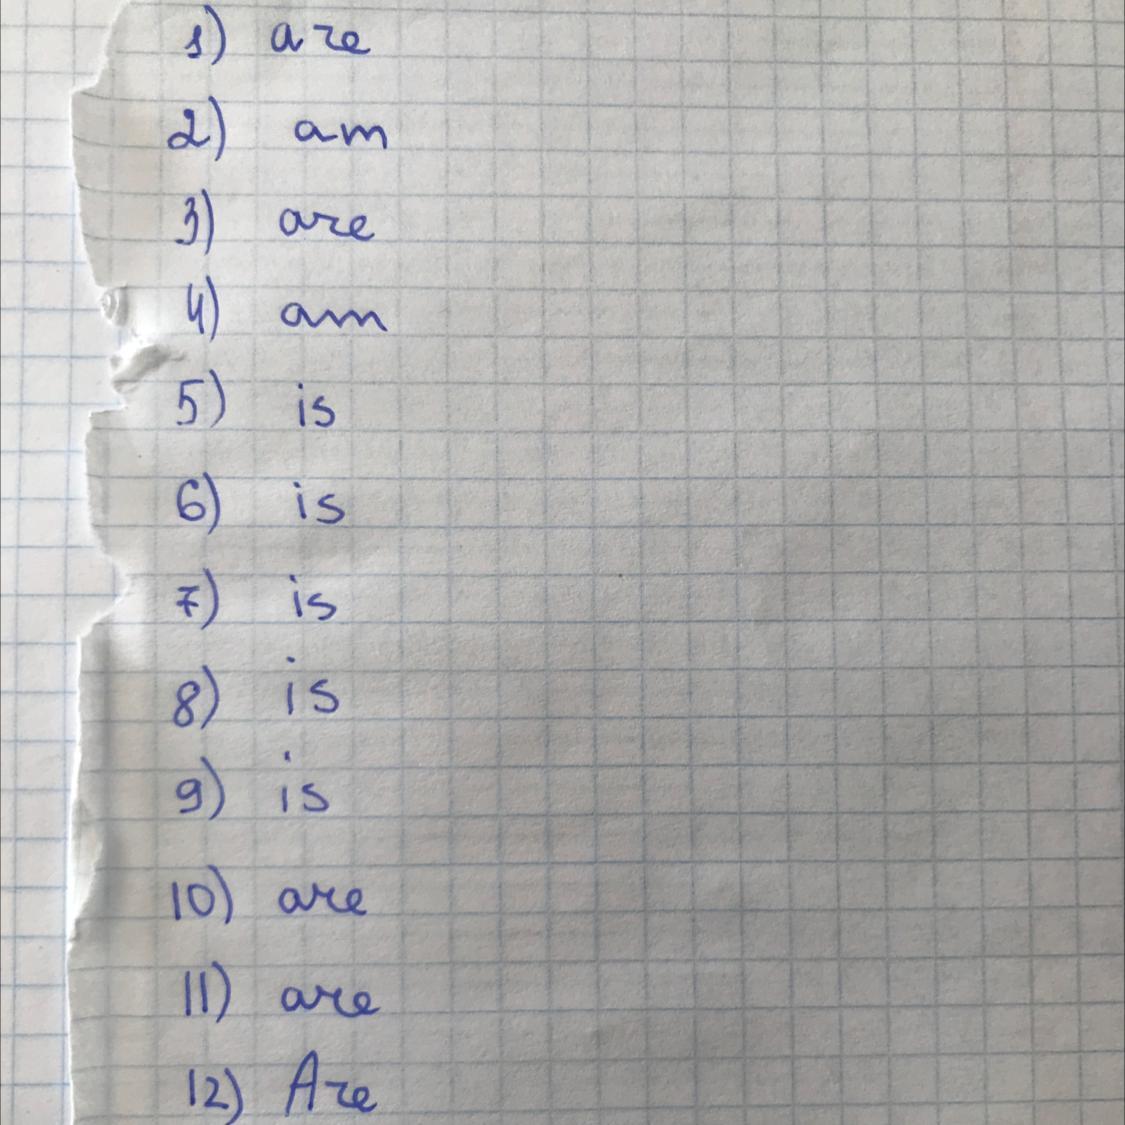 1) are
2) am
3) are
4) am
5) is
6) is
7) is
8) is
9) is
10) are
11) are
12) Are